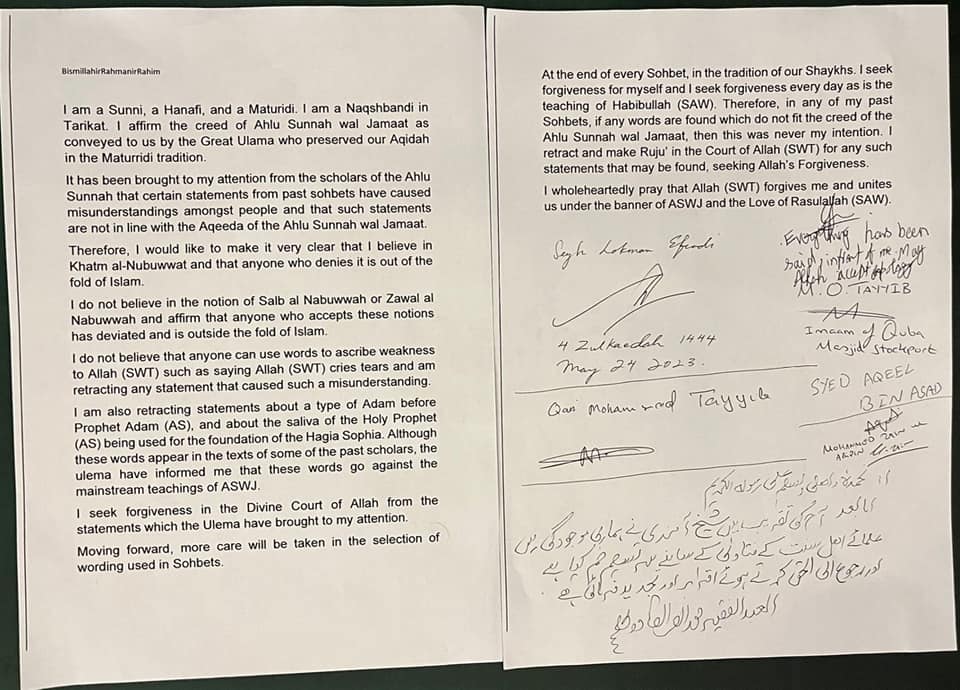 BismillahirRahmanirRahim
I am a Sunni, a Hanafi, and a Maturidi. I am a Naqshbandi in
Tarikat. I affirm the creed of Ahlu Sunnah wal Jamaat as
conveyed to us by the Great Ulama who preserved our Aqidah
in the Maturridi tradition.
It has been brought to my attention from the scholars of the Ahlu
Sunnah that certain statements from past sohbets have caused
misunderstandings amongst people and that such statements
are not in line with the Aqeeda of the Ahlu Sunnah wal Jamaat.
Therefore, I would like to make it very clear that I believe in
Khatm al-Nubuwwat and that anyone who denies it is out of the
fold of Islam.
I do not believe in the notion of Salb al Nabuwwah or Zawal al
Nabuwwah and affirm that anyone who accepts these notions
has deviated and is outside the fold of Islam.
I do not believe that anyone can use words to ascribe weakness
to Allah (SWT) such as saying Allah (SWT) cries tears and am
retracting any statement that caused such a misunderstanding.
I am also retracting statements about a type of Adam before
Prophet Adam (AS), and about the saliva of the Holy Prophet
(AS) being used for the foundation of the Hagia Sophia. Although
these words appear in the texts of some of the past scholars, the
ulema have informed me that these words go against the
mainstream teachings of ASWJ.
I seek forgiveness in the Divine Court of Allah from the
statements which the Ulema have brought to my attention.
Moving forward, more care will be taken in the selection of
wording used in Sohbets.
At the end of every Sohbet, in the tradition of our Shaykhs. I seek
forgiveness for myself and I seek forgiveness every day as is the
teaching of Habibullah (SAW). Therefore, in any of my past
Sohbets, if any words are found which do not fit the creed of the
Ahlu Sunnah wal Jamaat, then this was never my intention. I
retract and make Ruju' in the Court of Allah (SWT) for any such
statements that may be found, seeking Allah's Forgiveness.
I wholeheartedly pray that Allah (SWT) forgives me and unites
us under the banner of ASWJ and the Love of Rasulallah (SAW).
Seyh Lokman Efendi
4 Zulkaedah 1444
May 24 2023.
Qari Mohammad Tayyib
Everything has been
said infront of me. May
Allah accept
M. O. TAYYIB
Imaam of Quba
Masjid Stockport
SYED AQEEL
BIN ASAD
MOHAMMOD ZAIN UL
نحمدہ ونصلی ونسلم علی رسولہ الکریم
اما بعد آج کی تقریب میں شیخ آفندی نے ہماری موجودگی میں
علمائے اہل سنت کے فتاویٰ کے سامنے سر تسلیم خم کیا ہے
اور رجوع الی الحق کرتے ہوئے اقرار اور تجدید فرمائی ہے
العبد الفقیر